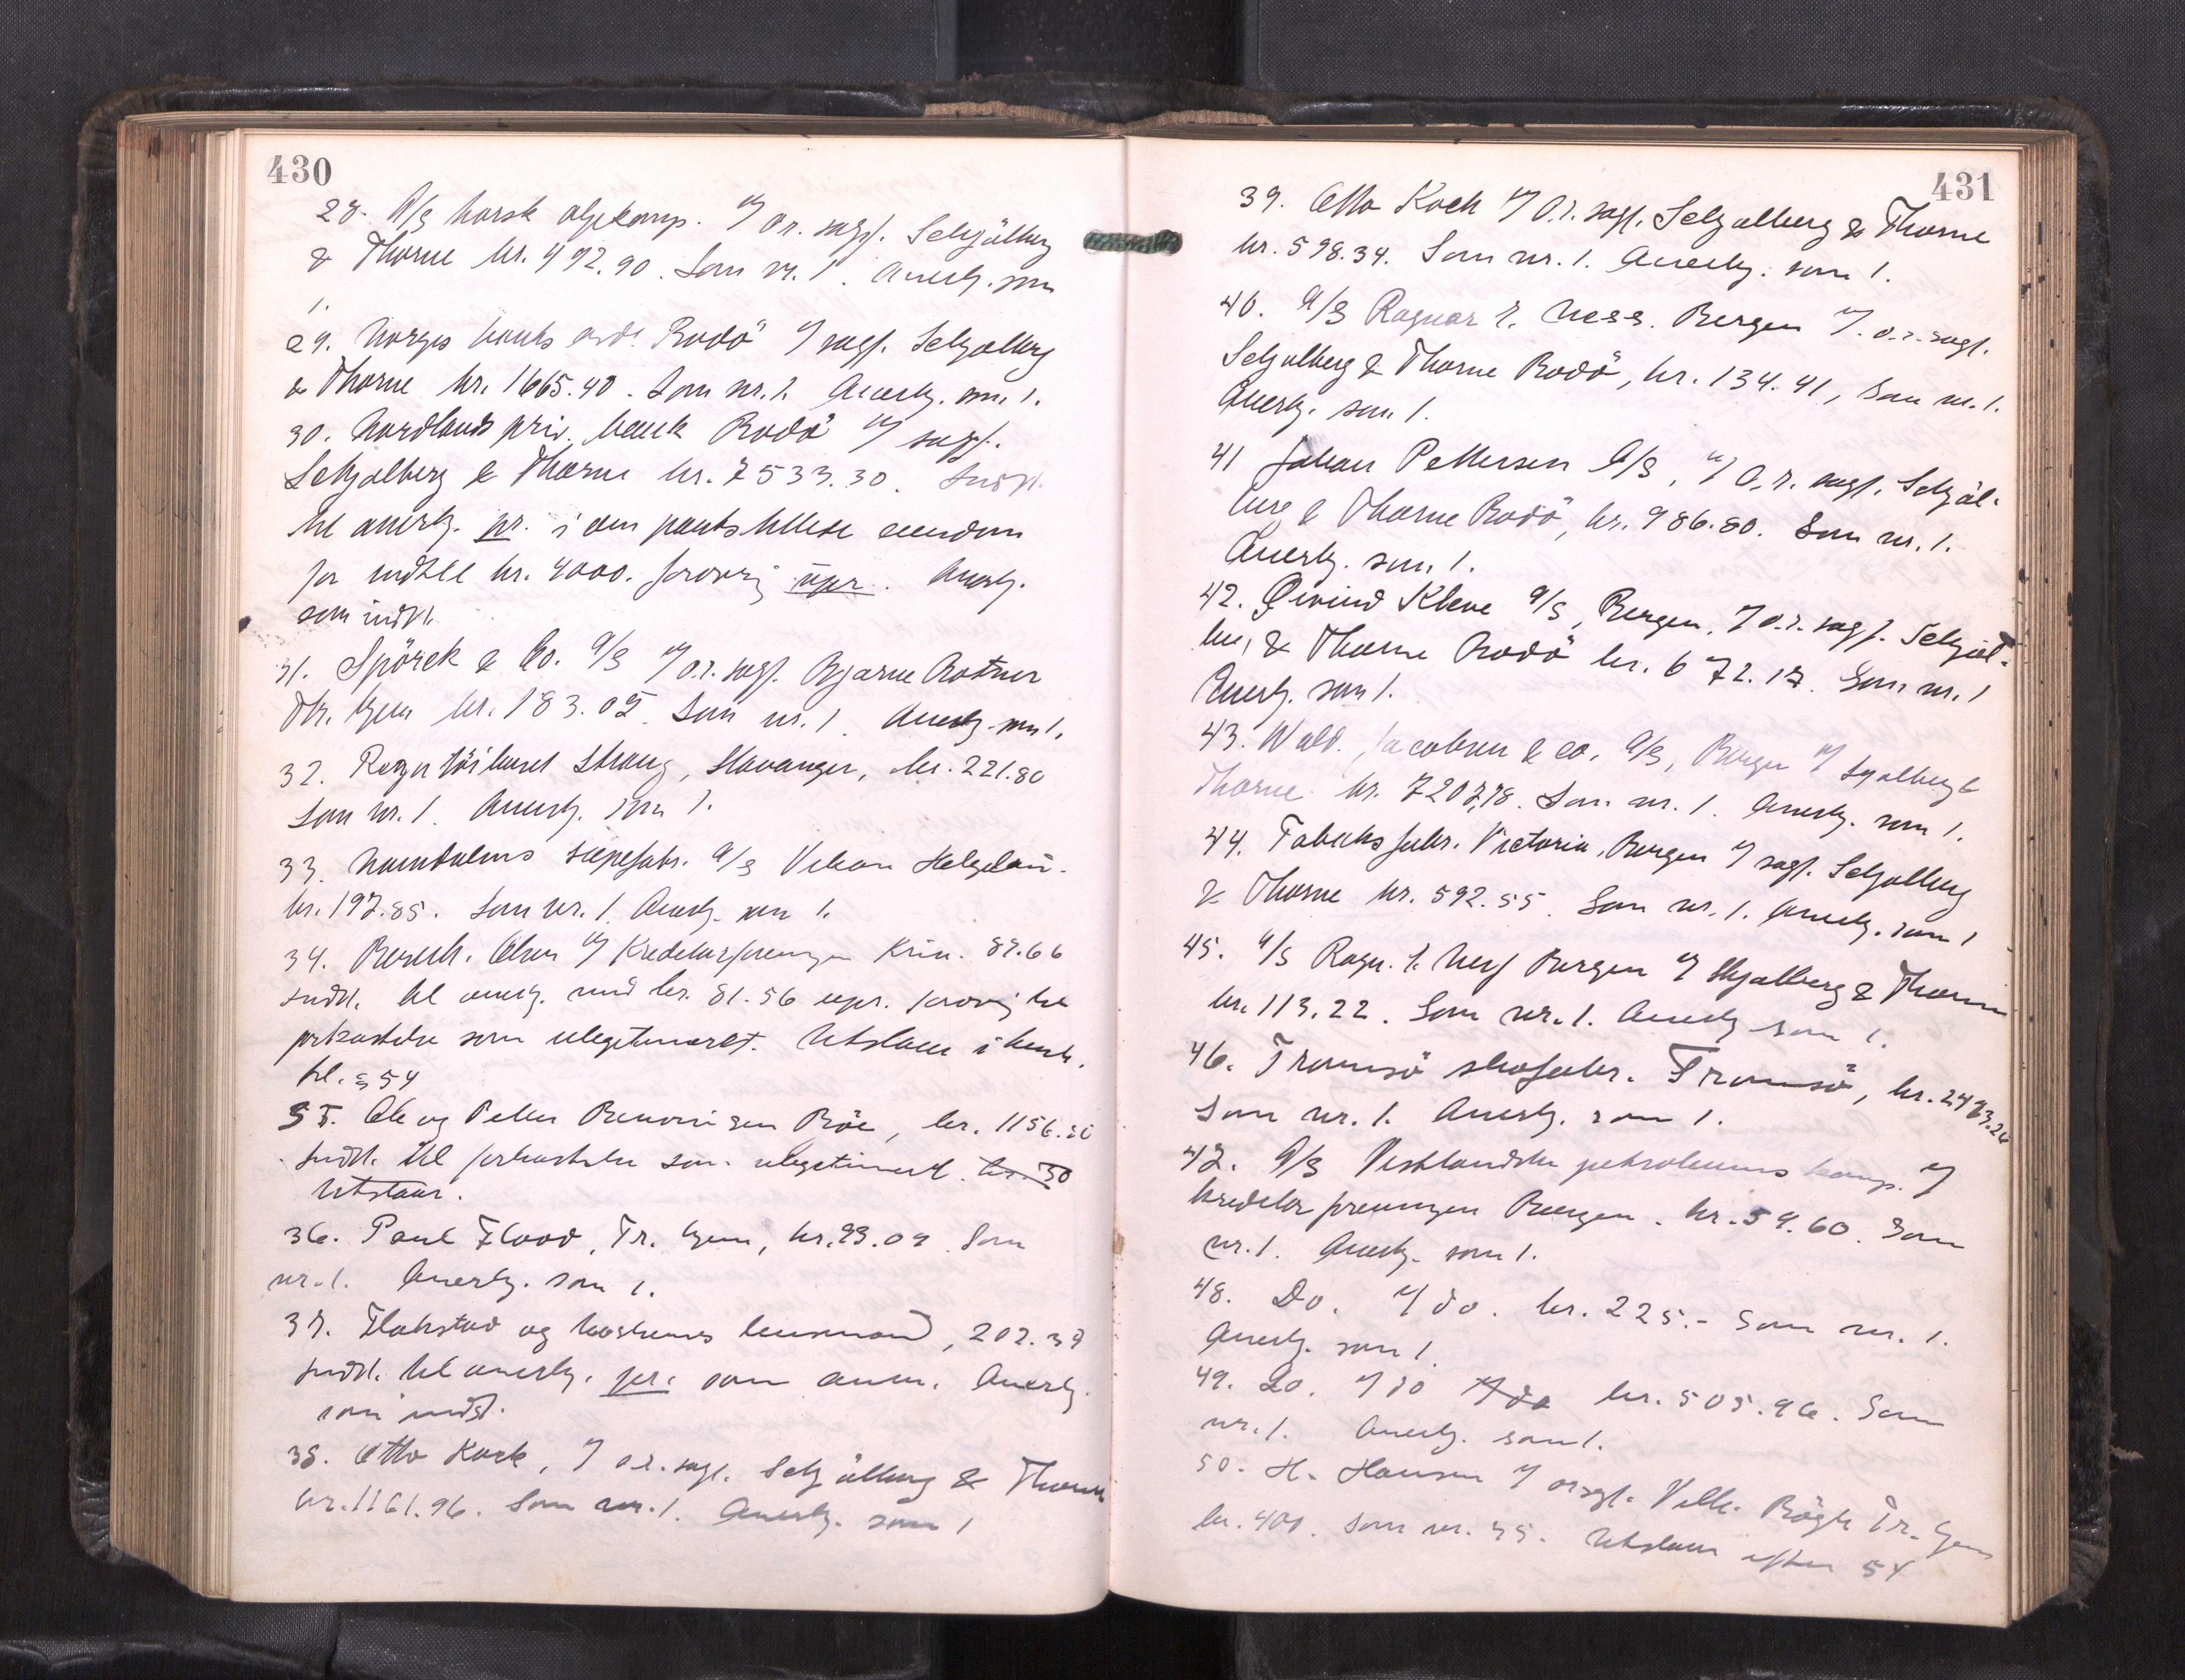 430
28. A/S Norsk oljekomp. v/ o.r. sagf. Schjölberg
& Thorne kr. 492.90. Som nr. 1. Anerkj. som
1.
29. Norges banks avd. Bodö v/ sagf. Schjølberg
& Thorne kr. 1665.40. Som nr. 1. Anerkj. som 1.
30. Nordlands priv. bank Bodö v/ sagf.
Schjølberg & Thorne kr. 7533.30. Indst.
til anerkj. pr. i den pantstillede eiendom
for indtil kr. 4000. forøvrig upr. Anerkj.
som indst.
31. Spörck & Co. A/S v/ o.r. sagf. Bjarne Rotner
Tr.hjem kr. 183.05. Som nr. 1. Anerkj. som 1.
32. Strang, Stavanger, kr. 221.80
Som nr. 1. Anerkj. som 1.
33. Namdalens sæpefabr. A/S Vikan Helgeland.
kr. 197.85. Som nr. 1. Anerkj. som 1.
34. Olsen v/ Kreditorforeningen Krin. 87.66
Indst. til anerkj. med kr. 81.56 upr. forøvrig til
forkastelse som ulegitimert. Utslaaes i henh.
til § 54
35. Ole og Petter Benonisen Böe, kr. 1156.20
Indst. til forkastelse som ulegitimert.
Utslaaes.
36. Paul Flood, Tr. hjem, kr. 93.09. Som
nr. 1. Anerkj. som 1.
37. Flakstad og Moskenes lensmand, 202.37
Indst. til anerkj. pr. som anm. Anerkj.
som indst.
38. Otto Koch, v/ o.r. sagf. Schjölberg & Thorne
kr. 1161.96. Som nr. 1. Anerkj. som 1
431
39. Otto Koch v/ O.r. sagf. Schjølberg & Thorne
kr. 598.34. Som nr. 1. Anerkj. som 1.
40. A/S Ragnar L. Ness. Bergen v/ o.r. sagf.
Schjølberg & Thorne Bodö, kr. 134.41, Som nr. 1.
Anerkj. som 1.
41 Johan Pettersen A/S, v/ O.r. sagf. Schjöl-
berg & Thorne Bodö, kr. 986.80. Som nr. 1.
Anerkj. som 1.
42. Øivind Kleve A/S, Bergen, v/ o.r. sagf. Schjöl-
berg & Thorne Bodö kr. 672.17. Som nr. 1
Anerkj. som 1.
43. Wald. Jacobsen & Co. A/S, Bergen v/ Sjølberg &
Thorne kr. 7207,78. Som nr. 1. Anerkj. som 1.
44. Tobaksfabr. Victoria, Bergen v/ sagf. Schjølberg
& Thorne kr. 592.55. Som nr. 1. Anerkj. som 1
45. A/S Ragn. L. Ness Bergen v/ Skjølberg & Thorne
kr. 113.22. Som nr. 1. Anerkj som 1.
46. Tromsö skofabr. Tromsö, kr. 2473.26
Som nr. 1. Anerkj. som 1.
47. A/S Vestlandske petroleums komp. v/
Kreditorforeningen Bergen. kr. 59.60. Som
nr. 1. Anerkj. som 1.
48. Do. v/ do. kr. 225.- Som nr. 1.
Anerkj. som 1.
49. Do. v/ do v/ do kr. 505.96. Som
nr. 1. Anerkj. som 1.
50. H. Hansen v/ orsgf. Vilh. Bögh Tr. hjem
kr. 400. Som nr. 35. Utslaaes efter 54